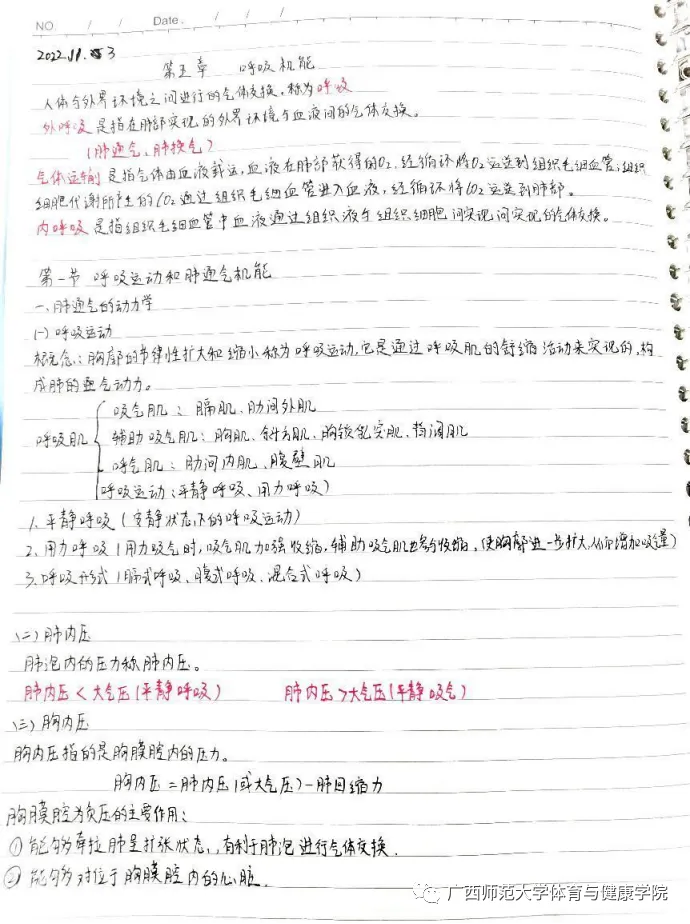 NO. / / Date. / / /
2022.11.3
第五章 呼吸机能
人体与外界环境之间进行的气体交换,称为呼吸
外呼吸是指在肺部实现的外界环境与血液间的气体交换。
(肺通气、肺换气)
气体运输是指气体由血液载运,血液在肺部获得的O₂,经循环将O₂运送到组织毛细血管;组织
细胞代谢所产生的CO₂通过组织毛细血管进入血液,经循环将CO₂运送到肺部。
内呼吸是指组织毛细血管中血液通过组织液与组织细胞间实现间实现的气体交换。
第一节 呼吸运动和肺通气机能
一、肺通气的动力学
(一)呼吸运动
概念:胸廓的节律性扩大和缩小称为呼吸运动,它是通过呼吸肌的舒缩活动来实现的,构
成肺的通气动力。
吸气肌:膈肌、肋间外肌
呼吸肌 辅助吸气肌:胸肌、斜方肌、胸锁乳突肌、背阔肌
呼气肌:肋间内肌、腹壁肌
呼吸运动:平静呼吸、用力呼吸)
1.平静呼吸(安静状态下的呼吸运动)
2.用力呼吸(用力吸气时,吸气肌加强收缩,辅助吸气肌也参与收缩,使胸廓进一步扩大,从而增加吸气量)
3.呼吸形式(膈式呼吸、腹式呼吸、混合式呼吸)
(二)肺内压
肺泡内的压力称肺内压。
肺内压<大气压(平静呼吸) 肺内压>大气压(平静吸气)
(三)胸内压
胸内压指的是胸膜腔内的压力。
胸内压=肺内压(或大气压)-肺回缩力
胸膜腔为负压的主要作用:
①能够牵拉肺呈扩张状态,有利于肺泡进行气体交换.
②能够对位于胸膜腔内的心脏.
广西师范大学体育与健康学院